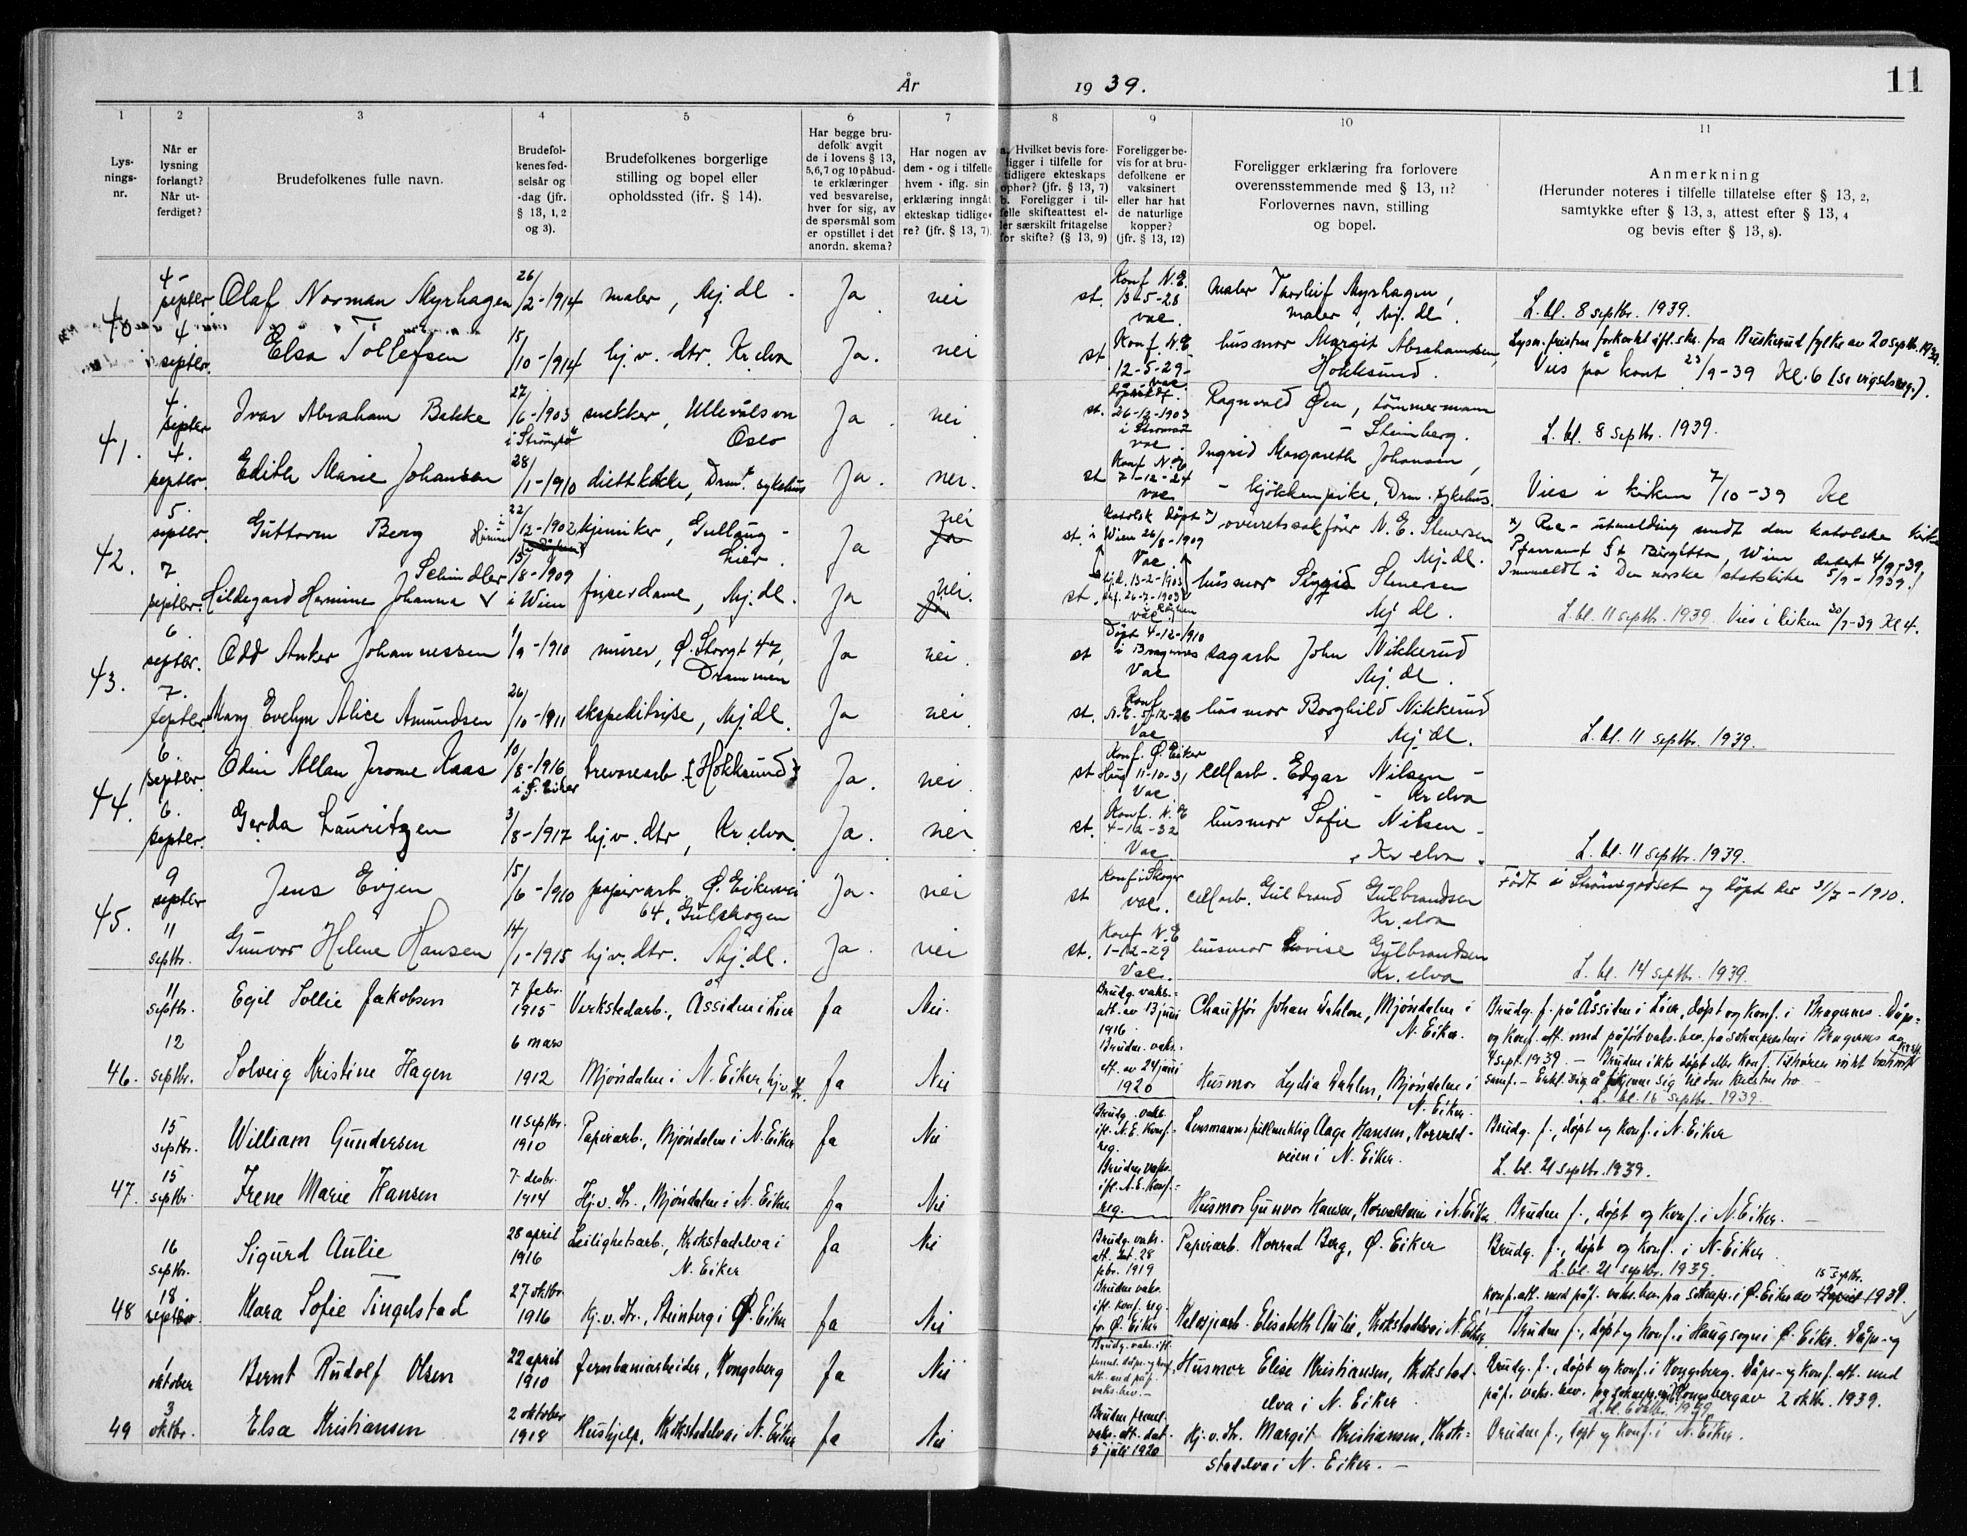 År 1939. 11
1 2 3 4 5 6 7 8 9 10 11
Lys-
nings-
nr.
Når er
lysning
forlangt?
Når ut-
ferdiget?
Brudefolkenes fulle navn.
Brudefol-
kenes fød-
selsår og
-dag (jfr.
§ 13, 1, 2
og 3).
Brudefolkenes borgerlige
stilling og bopel eller
opholdssted (ifr. § 14).
Har begge bru-
defolk avgit
de i lovens § 13,
5,6,7 og 10 påbud-
te erklæringer
ved besvarelse,
hver for sig, av
de spørsmål som
er opstillet i det
anordn. skema?
Har nogen av
dem - og i tilfelle
hvem - iflg. sin
erklæring inngåt
ekteskap tidlige-
re? (jfr. § 13, 7).
a. Hvilket bevis fore-
ligger i tilfelle for
tidligere ekteskaps
ophør? (jfr. § 13, 7)
b. Foreligger i til-
felle skifteattest el-
ler særskilt fritagelse
for skifte? (§ 13, 9)
Foreligger be-
vis for at bru-
defolkene er
vaksinert
eller har hat
de naturlige
kopper?
(jfr. § 13, 12)
Foreligger erklæring fra forlovere
overensstemmende med § 13, 11?
Forlovernes navn, stilling
og bopel.
Anmerkning
(Herunder noteres i tilfelle tillatelse efter § 13, 2,
samtykke efter § 13, 3, attest efter § 13, 4
og bevis efter § 13, 8).
40. 4 septbr. Olaf Norman Myrhagen 26/2-1914 maler, Mj.dl. Ja. nei st. Konf. N.E. 13-5-28 vac. maler Thorleif Myrhagen, maler, Mj.dl. L. bl. 8 septbr. 1939.
4 septbr. Elsa Tollefsen 15/10-1914 hj.v. dtr. Kr.elva Ja. nei st. Konf. N.E. 12-5-29- vac. husmor Margit Abrahamsen, Hokksund. Lysn.fristen forkortet ifl. skr. fra Buskerud fylke av 20 septbr. 1939.
Vies på kont 23/9-39 Kl. 6 (se vigselsreg.).
41. 4. septbr Ivar Abraham Bakke 27/6-1903 i Strömsö snekker, Ullevålsvn Oslo Ja. nei st. 26-12-1903 i Strømsø vac. Ragnvald Øen, tömmermann - Steinberg. L. bl. 8 septbr. 1939.
4. septbr. Edith Marie Johansen 28/1-1910 diettkokke, Drm. sykehus Ja. nei. st Konf. N.E. 7-12-24 vac Ingrid Margareth Johansen, - kjökkenpike, Drm. sykehus. Vies i kirken 7/10-39 Kl
42. 5. septbr. Guttorm Berg 22/12-1902 kjemiker, Gullaug - Lier. Ja nei st. Katolsk döpt i Wien 26/8-1909 Vac. overretssakförer N. E. Stenersen Mj.dl. x) Re- utmelding sendt den katolske kirke
Pfarramt St Birgitta, Wien datert 4/9-39.
7 septbr. Hildegard Hermine Johanna Schindler 15/8-1909 i Wien friserdame, Mj.dl. Ja nei. st. vac husmor Sigrid Stenersen Mj.dl. Innmeldt i Den norske statskirke 5/9-1939!
L. bl. 11 septbr. 1939. Vies i kirken 30/9-39 Kl 4.
43. 6. septbr. Odd Anker Johannessen 1/9-1910 murer, Ø. Storgt 47, Drammen Ja nei. st Døpt 4-12-1910 i Bragernes Vac sagarb John Nikkerud Mj.dl.
7. septbr. Mary Evelyn Alice Amundsen 26/10-1911 ekspeditrise, Mj.dl. Ja nei st. Konf N.E. 5/12-26 Vac husmor Borghild Nikkerud Mj.dl. L. bl. 11 septbr. 1939.
44. 6. septbr. Odin Allan Jerome Kaas 10/8-1916 i Ø. Eiker trevarearb. (Hokksund) Ja. nei st Konf. Ø. Eiker Haug 11-10-31 Vac cellarb. Edgar Nilsen - Kr.elva
6. septbr. Gerda Lauritzen 3/8-1917 hj.v. dtr, Kr.elva Ja. nei st. Konf. N.E 4-12-32 Vac husmor Sofie Nilsen - Kr elva. L. bl. 11 septbr. 1939.
45. 9 septbr Jens Evjen 15/6-1910 papirarb Ø. Eikervei 64, Gulskogen Ja. nei st Konf i Skoger vac. cellarb. Gulbrand Gulbrandsen Kr.elva Født i Strömsgodset og döpt der 31/7-1910.
11 septbr. Gunvor Helene Hansen 14/1-1915 hj.v. dtr. Mj.dl. Ja. nei st. Konf N.E 1-12-29 Vac. husmor Lovise Gulbrandsen Kr.elva L. bl. 14 septbr. 1939.
46. 11 septbr. Egil Sollie Jakobsen 7 febr. 1915 Verkstedarb., Åssiden i Lier Ja Nei. Brudg. vaks.- att. av 13 juni 1916. Chauffør Johan Dahlen, Mjöndalen i N. Eiker. Brudg. f. på Åssiden i Lier, döpt og konf. i Bragernes. Dåps-
og konf.att. med påført vaks.bev. fra sokneprestem i Bragernes av
4 sept. 1939. - Bruden ikke døpt eller konf.
12 septbr. Solveig Kristine Hagen 6 mars 1912 Mjöndalen i N. Eiker, hj.v. dtr. Ja Nei Bruden. vaks. att. av 24 juni 1920 Husmor Lydia Dahlen, Mjöndalen i N. Eiker.
L. bl. 16 septbr. 1939.
47. 15 septbr. William Gundersen 11 septbr. 1910 Papirarb., Mjöndalen i N. Eiker Ja Nei Brudg. vaks. ifl. N.E. konf.- reg. Lensmannsfullmektig Aage Hansen, Korvald- veien i N. Eiker. Brudg. f., døpt og konf. i N. Eiker
L. bl. 21 septbr. 1939.
15 septbr. Irene Marie Hansen 7 desbr. 1914 Hj.v. dtr., Mjöndalen i N. Eiker Ja Nei Bruden vaks. ifl. N.E. konf.- reg. Husmor Gunvor Hansen, Korvaldveien i N. Eiker Bruden f., døpt og konf. i N. Eiker.
48 16 septbr. Sigurd Aulie 28 april 1916 Leilighetsarb., Krokstadelva i N. Eiker Ja Nei Brudg. vaks. att. dat. 28 febr. 1919 Papirarb. Konrad Berg, Ø. Eiker Brudg. f., döpt og konf. i N. Eiker.
L. bl. 21 septbr. 1939.
18. septbr Klara Sofie Tingelstad 27 oktbr. 1916 Hj.v. dtr., Steinberg i Ø. Eiker Ja Nei Bruden vaks. ifl. konf. reg. for Ø. Eiker Elisabeth Aulie, Krokstadelva i N. Eiker. Konf.att. med påf. vaks.bev. fra soknepr. i Ø. Eiker av 15 septbr. 1939.
Bruden f., døpt og konf. i Haug sogn i Ø. Eiker.
49 1 oktober Bernt Rudolf Olsen 22 april 1910 Jernbanearbeider, Kongsberg Ja Nei Brudg. vaks. ifl. freml. dåps- og konf. att. med påf. vaks.bev. - Husmor Elise Kristiansen, Krokstad- elva i N. Eiker. Brudg. f., døpt og konf. i Kongsberg. Dåps- og konf. att. med
påf. vaks. bev. fra soknepr. i Kongsberg av 2 oktbr. 1939.
L. bl. 6 oktbr. 1939.
3 oktbr. Elsa Kristiansen 2 oktober 1918 Hushjelp, Krokstadelva i N. Eiker Ja Nei Bruden freml. vaks. att. dat. 5 juli 1920 Hj.v. dtr. Margit Kristiansen, Krok- stadelva i N. Eiker. - Bruden f., døpt og konf. i N. Eiker.